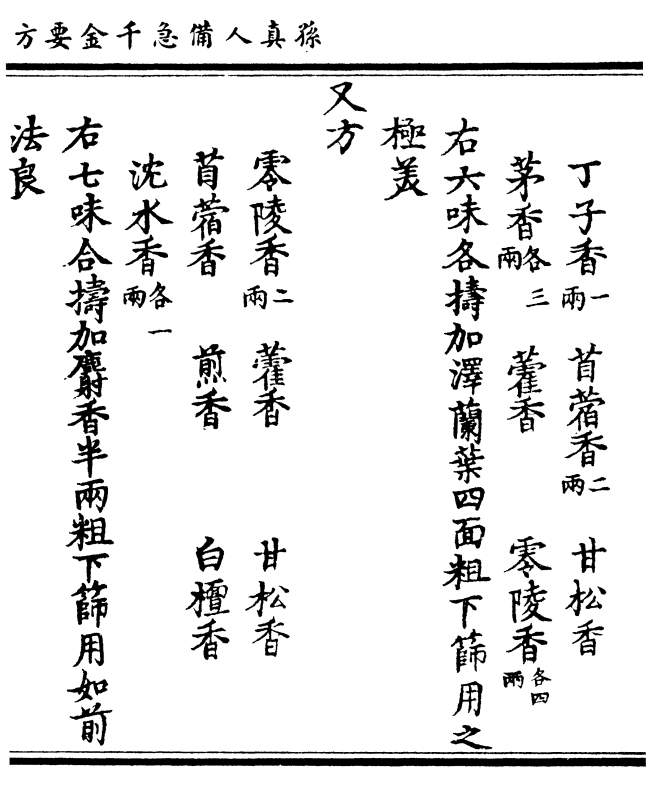 孫真人備急千金要方
丁子香一兩 苜蓿香二兩 甘松香
茅香各三兩 藿香 零陵香各四兩
右六味各擣加澤蘭葉四面粗下篩用之
極美
又方
零陵香二兩 藿香 甘松香
苜蓿香 煎香 白檀香
沈水香各一兩
右七味合擣加麝香半兩粗下篩用如前
法良